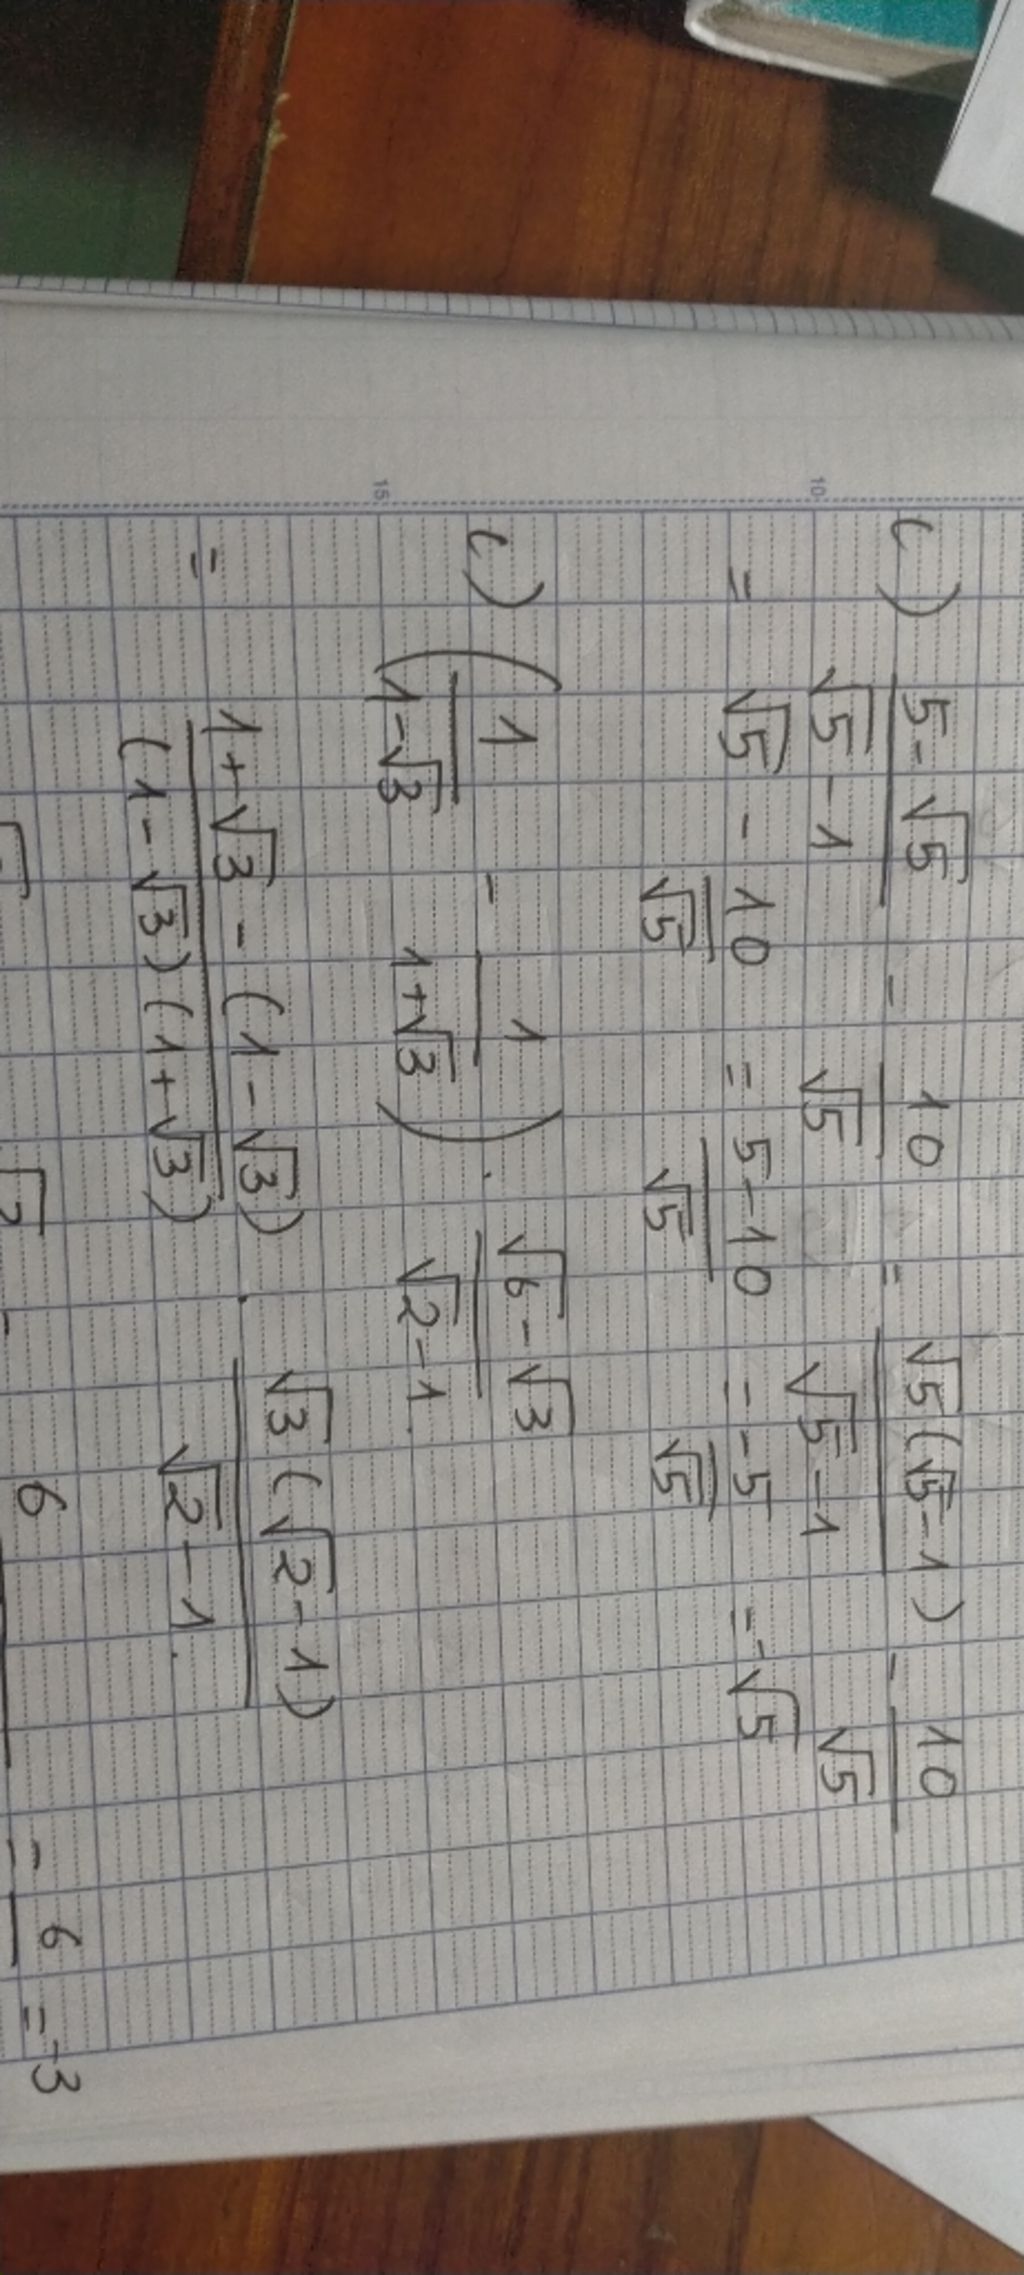 c) \frac{5-\sqrt{5}}{\sqrt{5}-1} - \frac{10}{\sqrt{5}} = \frac{\sqrt{5}(\sqrt{5}-1)}{\sqrt{5}-1} - \frac{10}{\sqrt{5}}
= \sqrt{5} - \frac{10}{\sqrt{5}} = \frac{5-10}{\sqrt{5}} = \frac{-5}{\sqrt{5}} = -\sqrt{5}
c) (\frac{1}{1-\sqrt{3}} - \frac{1}{1+\sqrt{3}}) . \frac{\sqrt{6}-\sqrt{3}}{\sqrt{2}-1}
= \frac{1+\sqrt{3}-(1-\sqrt{3})}{(1-\sqrt{3})(1+\sqrt{3})} . \frac{\sqrt{3}(\sqrt{2}-1)}{\sqrt{2}-1}.
6 = 6 = -3
10
15